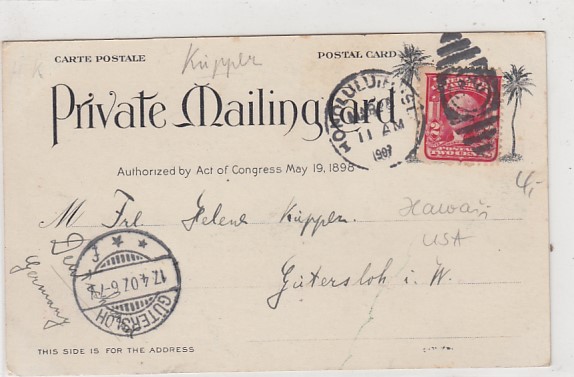 H K
CARTE POSTALE
Küpper
POSTAL CARD
Private Mailing Card
HONOLULU, H.
11 AM
1907
2
TWO CENTS
Authorized by Act of Congress May 19, 1898
4,-
M Frl. Helene Küpper.
Hawaii
USA
Gütersloh i. W.
Germany
GÜTERSLOH
17.4.07.6-7
THIS SIDE IS FOR THE ADDRESS